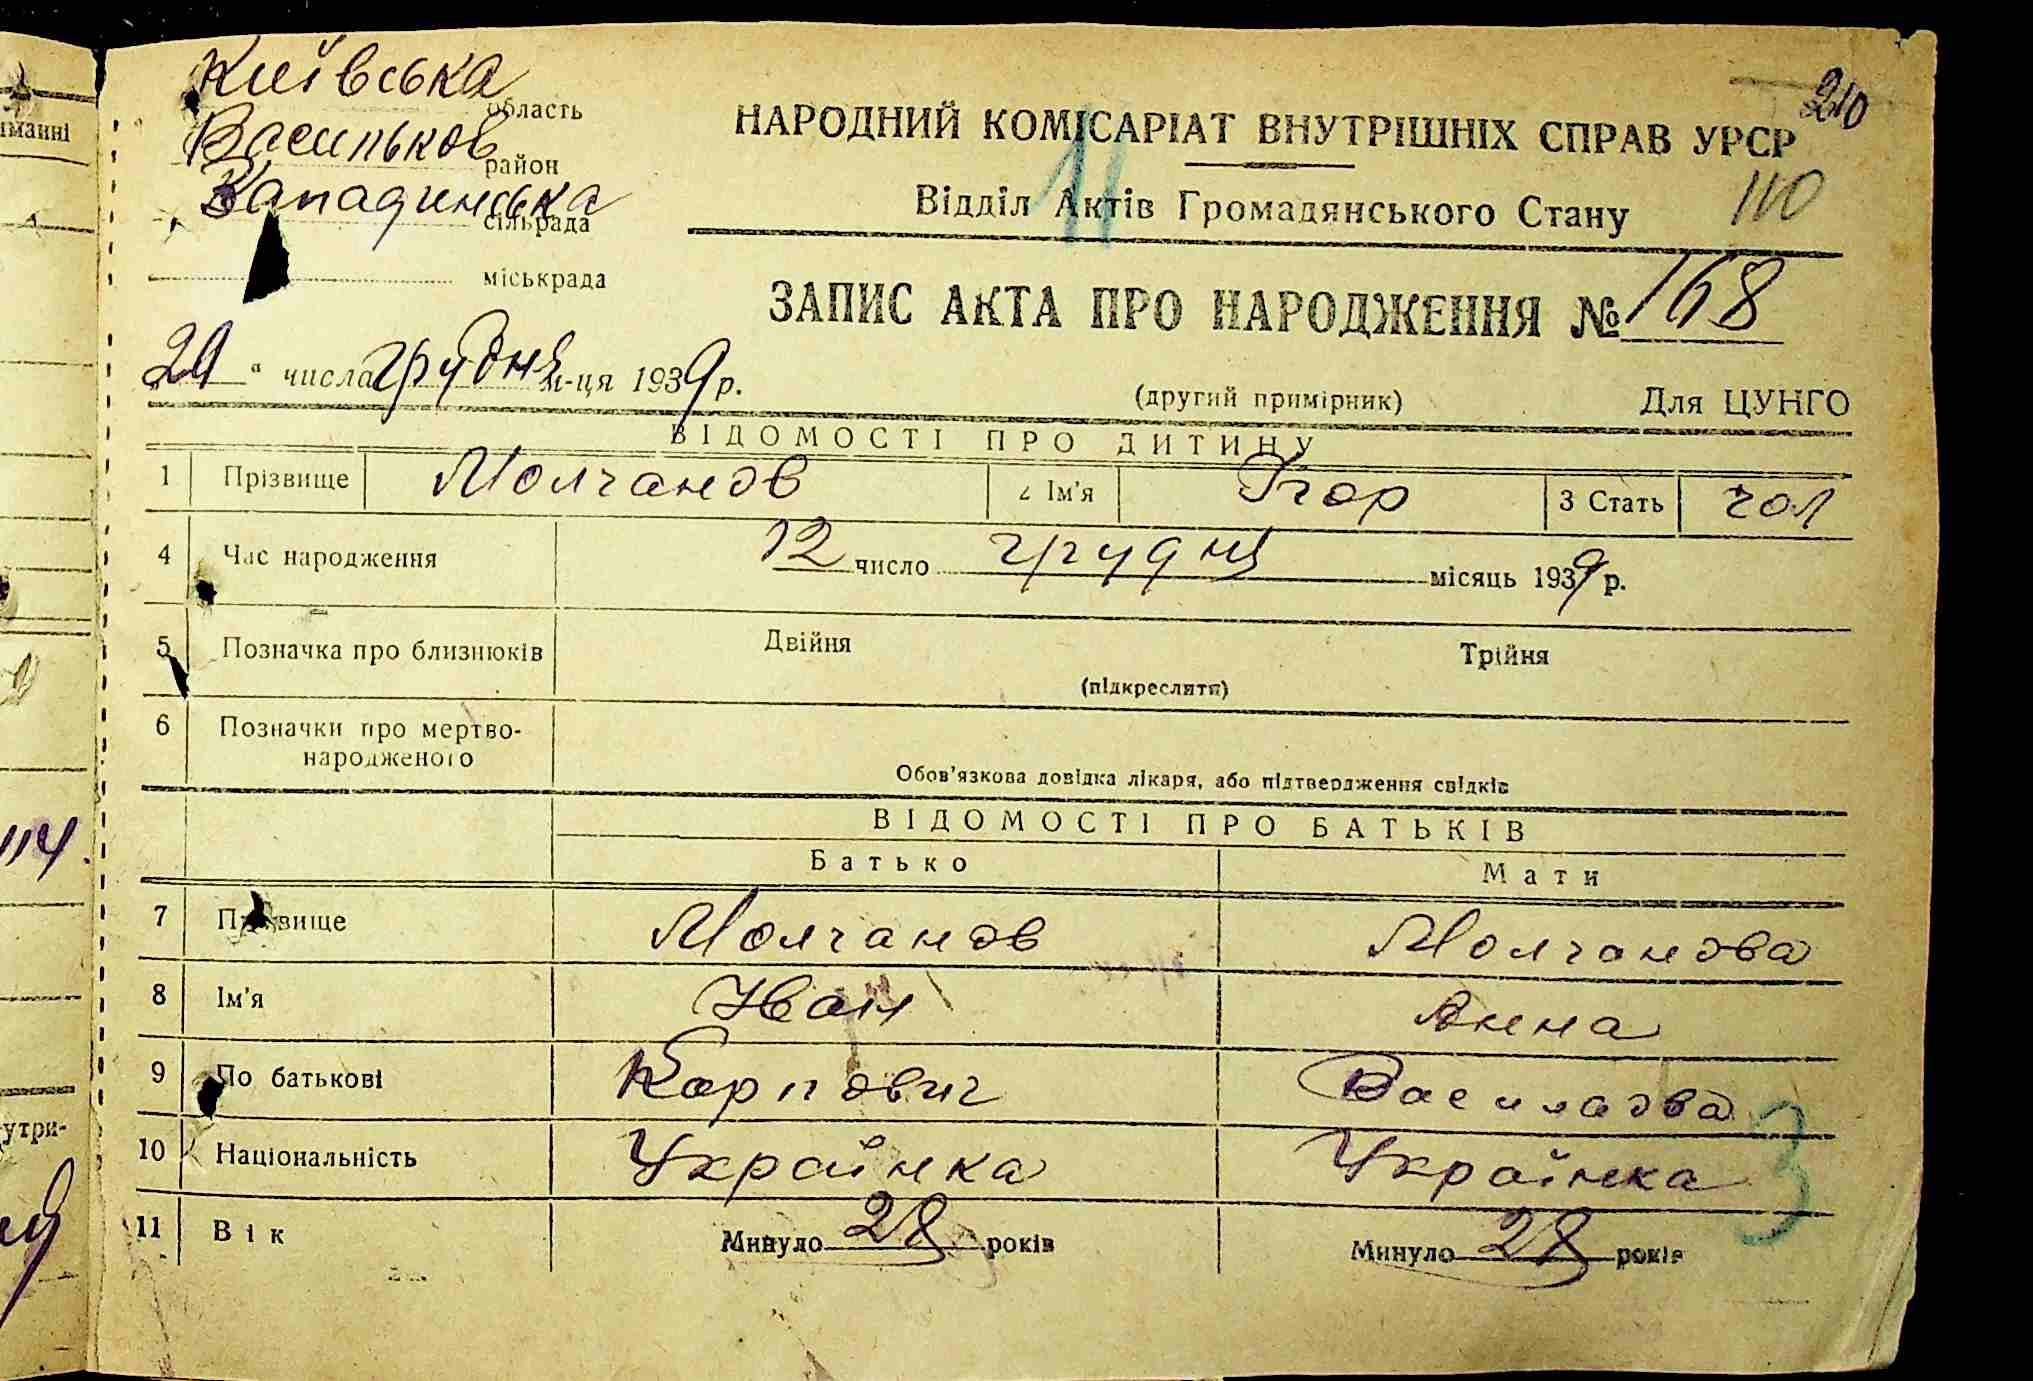 Київська область
Васильков район
Западинська сільрада
міськрада
210
НАРОДНИЙ КОМІСАРІАТ ВНУТРІШНІХ СПРАВ УРСР
11
Відділ Актів Громадянського Стану
110
ЗАПИС АКТА ПРО НАРОДЖЕННЯ № 168
числа грудня м-ця 1939 р.
(другий примірник)
Для ЦУНГО
ВІДОМОСТІ ПРО ДИТИНУ
1 Прізвище Молчанов 2 Ім'я Ігор 3 Стать чол
4 Час народження 12 число грудня місяць 1939 р.
5 Позначка про близнюків Двійня Трійня
(підкреслити)
6 Позначки про мертво-
народженого
Обов'язкова довідка лікаря, або підтвердження свідків
ВІДОМОСТІ ПРО БАТЬКІВ
Батько Мати
7 Прізвище Молчанов Молчанова
8 Ім'я Иван Анна
9 По батькові Карпович
10 Національність Українка Українка
3
11 Вік Минуло 28 років Минуло 28 років
иманні
114.
утри-